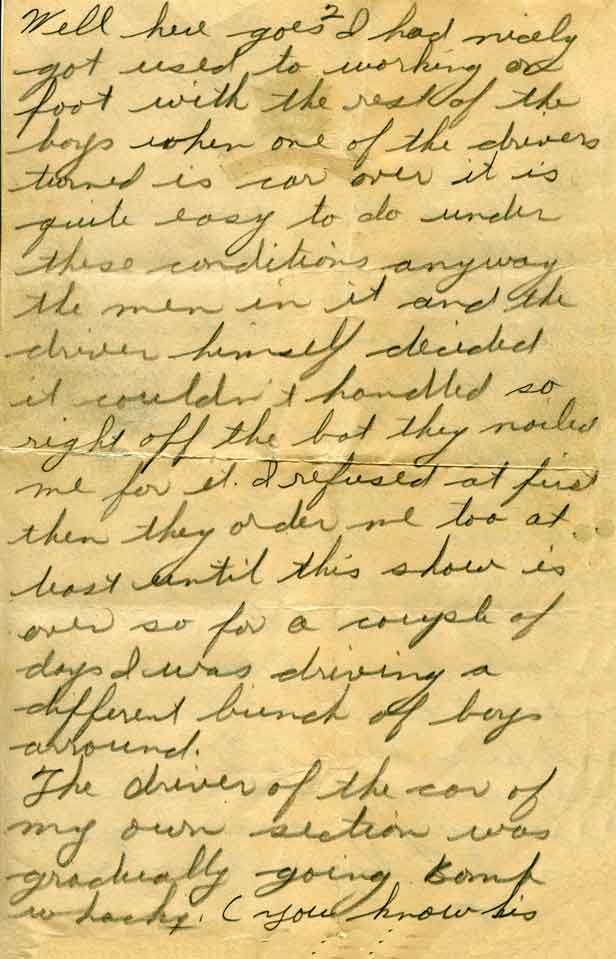 Well here goes? I had nicely
got used to working on
foot with the rest of the
boys when one of the drivers
turned is car over it is
quite easy to do under
these conditions anyway
the men in it and the
driver himself decided
it couldn't handled so
right off the bat they nailed
me for it. I refused at first
then they order me too at
least until this show is
over so for a couple of
days I was driving a
different bunch of boys
arround.
The driver of the car of
my own section was
gradually going bomb
whacky. (you know his